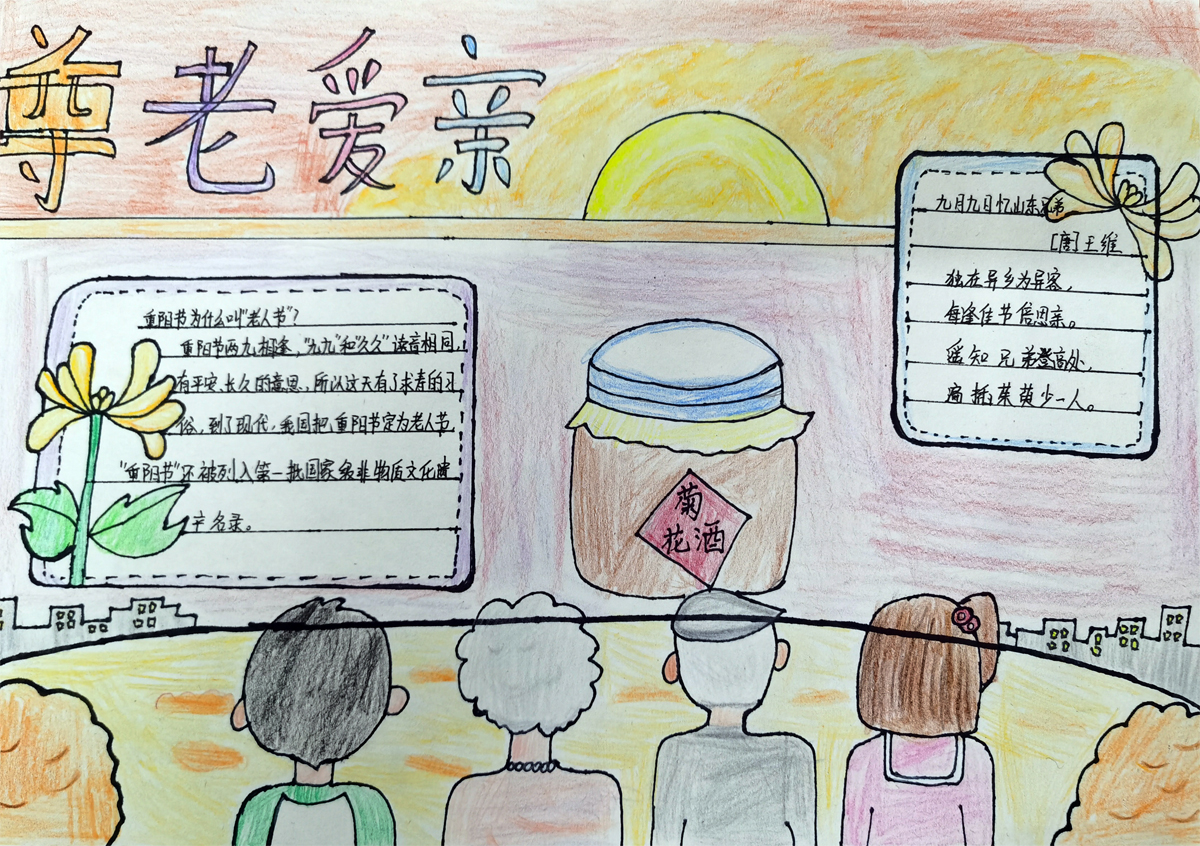 尊老爱亲
重阳节为什么叫"老人节"?
重阳节两九相逢,"九九"和"久久"读音相同,
有平安、长久的意思,所以这天有了求寿的习
俗,到了现代,我国把重阳节定为老人节,
"重阳节"还被列入第一批国家级非物质文化遗
产名录。
九月九日忆山东兄弟
[唐]王维
独在异乡为异客,
每逢佳节倍思亲。
遥知兄弟登高处,
遍插茱萸少一人。
菊
花酒